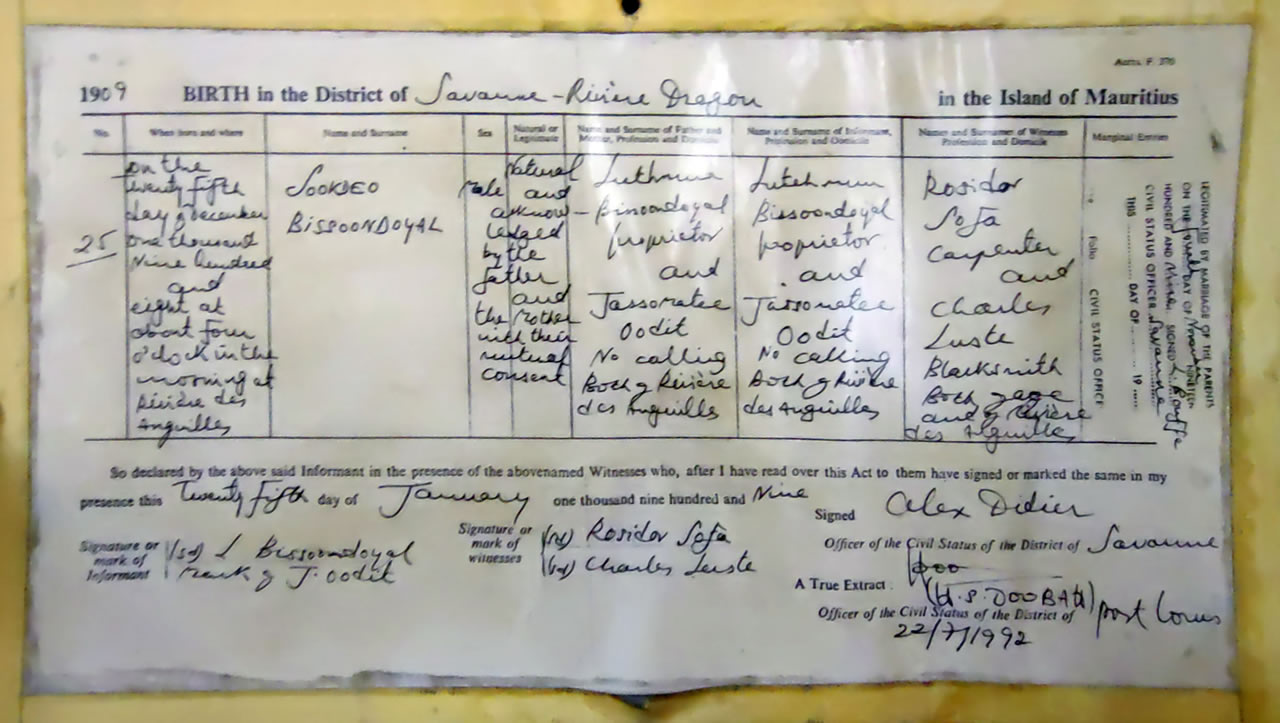 Acts. F. 370
1909 BIRTH in the District of Savanne - Rivière Dragon in the Island of Mauritius
No.
When born and where
Name and Surname
Sex
Natural or Legitimate
Name and Surname of Father and Mother, Profession and Domicile
Name and Surname of Informant, Profession and Domicile
Names and Surnames of Witnesses Profession and Domicile
Marginal Entries
25
on the
twenty fifth
day of december
one thousand
Nine hundred
and
eight at
about four
o'clock in the
morning at
Rivière des
Anguilles
SOOKDEO
BISSOONDOYAL
male
Natural
and
acknow-
ledged
by the
father
and
the Mother
with their
mutual
consent
Luthmun
Bissoondoyal
proprietor
and
Jassoratee
Oodit
No calling
Both of Rivière
des Anguilles
Lutchmun
Bissoondoyal
proprietor
and
Jassoratee
Oodit
No calling
Both of Rivière
des Anguilles
Rosidor
Sofa
Carpenter
and
Charles
Luste
Blacksmith
Both of age
and of Rivière
des Anguilles
Folio
CIVIL STATUS OFFICE
LEGITIMATED BY MARRIAGE OF THE PARENTS
ON THE DAY OF NINETEEN
HUNDRED AND Nine SIGNED
CIVIL STATUS OFFICER Savanne
THIS DAY OF 19
So declared by the above said Informant in the presence of the abovenamed Witnesses who, after I have read over this Act to them have signed or marked the same in my
presence this Twenty fifth day of January one thousand nine hundred and Nine
Signed Alex Didier
Signature or mark of Informant
(sd) L Bissoondoyal
Mark of J. Oodit
Signature or mark of witnesses
(sd) Rosidor Sofa
(sd) Charles Luste
Officer of the Civil Status of the District of Savanne
A True Extract
(H.S. DOOBAH)
Officer of the Civil Status of the District of Port Louis
22/7/1992